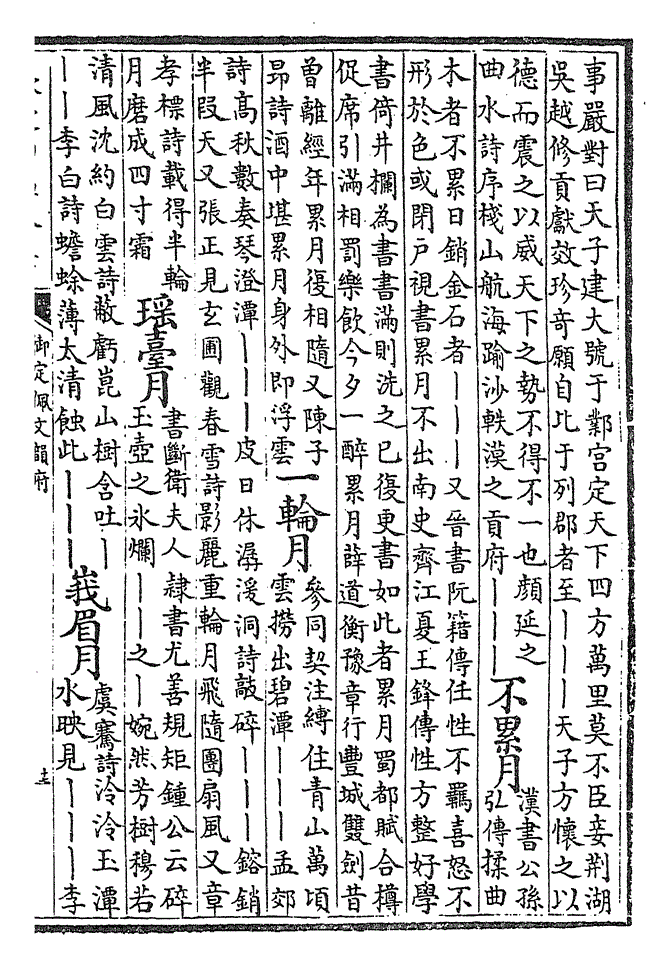 事嚴對曰天子建大號于酇宮定天下四方萬里莫不臣妾荆湖
吳越修貢獻效珍奇願自比于列郡者至｜｜｜天子方懷之以
德而震之以威天下之勢不得不一也顔延之
曲水詩序棧山航海踰沙軼漠之貢府｜｜｜
不累月
漢書公孫
弘傳揉曲
木者不累日銷金石者｜｜｜又晉書阮籍傳任性不羈喜怒不
形於色或閉户視書累月不出南史齊江夏王鋒傳性方整好學
書倚井欄為書書滿則洗之已復更書如此者累月蜀都賦合樽
促席引滿相罰樂飲今夕一醉累月薛道衡豫章行豐城雙劍昔
曾離經年累月復相隨又陳子
昂詩酒中堪累月身外即浮雲
一輪月
參同契注縛住青山萬頃
雲撈出碧潭｜｜｜孟郊
詩高秋數奏琴澄潭｜｜｜皮日休潺湲洞詩敲碎｜｜｜鎔銷
半段天又張正見玄圃觀春雪詩影麗重輪月飛隨團扇風又章
孝標詩載得半輪
月磨成四寸霜
瑶臺月
書斷衛夫人隷書尤善規矩鍾公云碎
玉壺之氷爛｜｜之｜婉然芳樹穆若
清風沈約白雲詩蔽虧崑山樹含吐｜
｜｜李白詩蟾蜍薄太清蝕此｜｜｜
峩眉月
虞騫詩泠泠玉潭
水映見｜｜｜李
御定佩文韻府